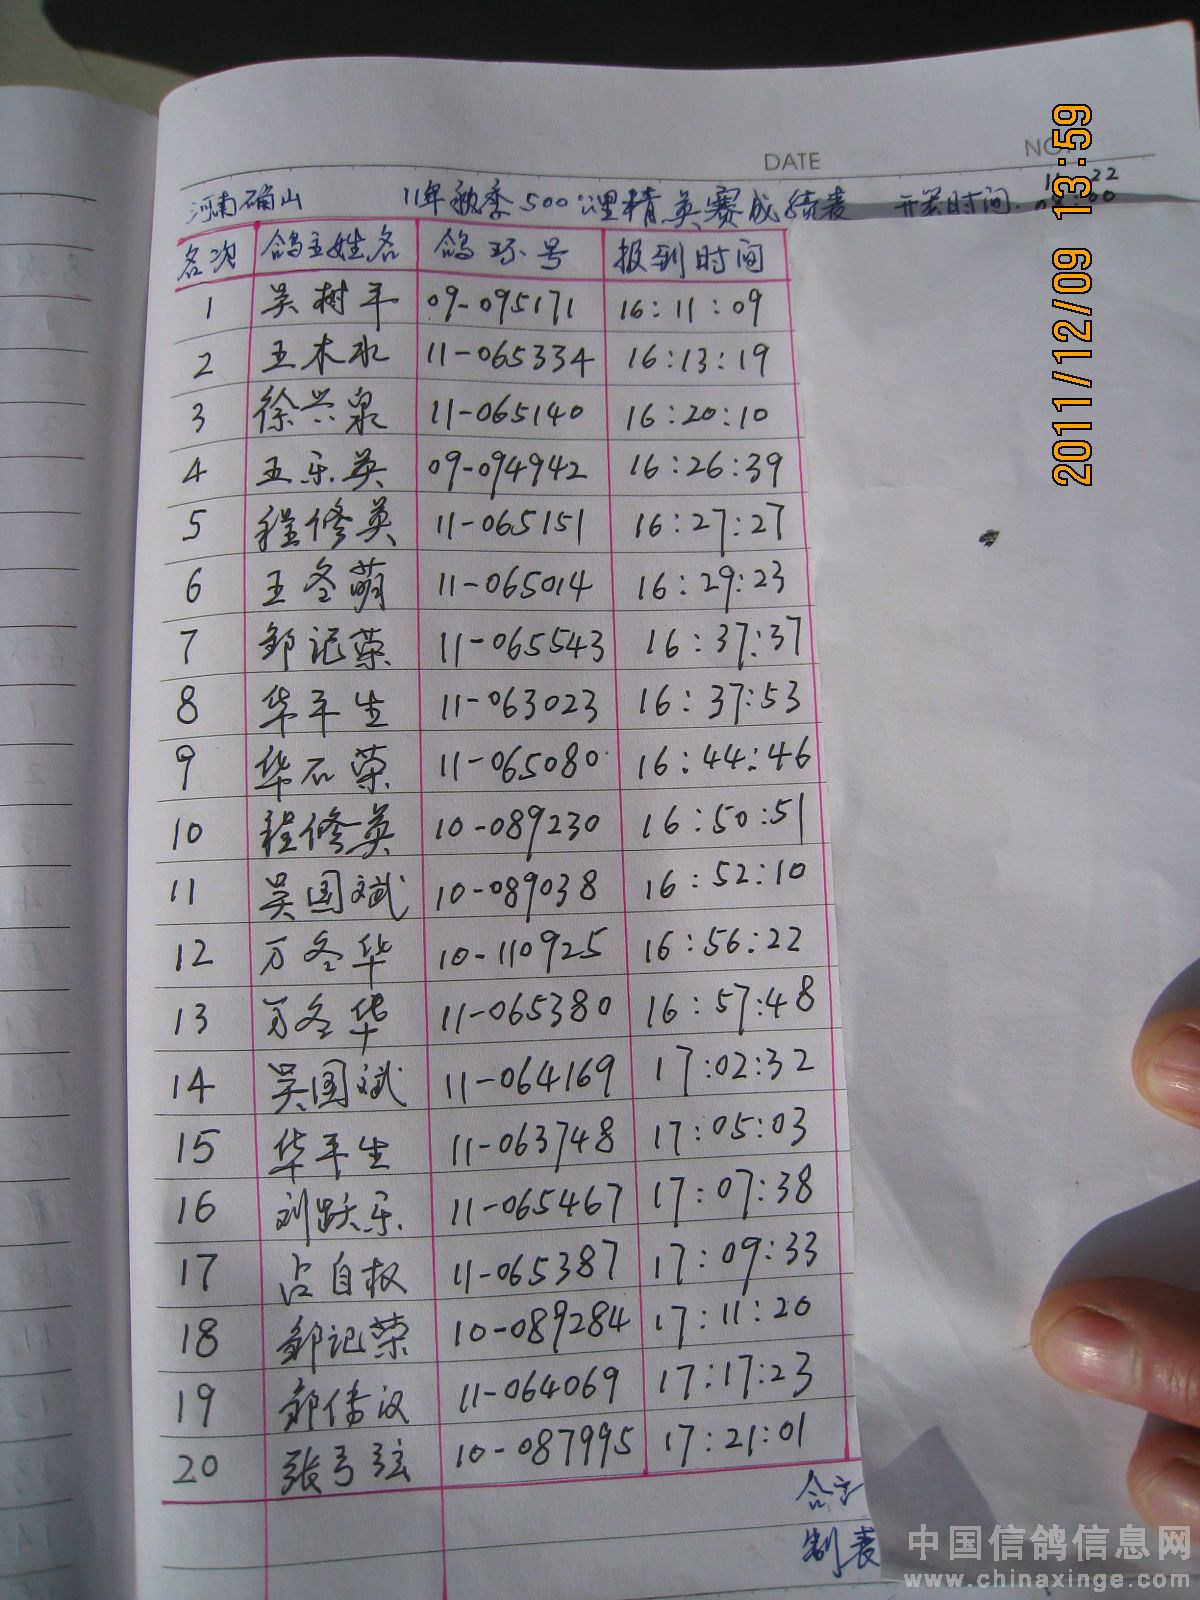 DATE
NO.
河南确山 11年秋季500公里精英赛成绩表 开笼时间
名次 鸽主姓名 鸽环号 报到时间
1 吴树平 09-095171 16:11:09
2 王木水 11-065334 16:13:19
3 徐兴泉 11-065140 16:20:10
4 王乐英 09-094942 16:26:39
5 程修英 11-065151 16:27:27
6 王冬萌 11-065014 16:29:23
7 邹记荣 11-065543 16:37:37
8 华平生 11-063023 16:37:53
9 华石荣 11-065080 16:44:46
10 程修英 10-089230 16:50:51
11 吴国斌 10-089038 16:52:10
12 万冬华 10-110925 16:56:22
13 万冬华 11-065380 16:57:48
14 吴国斌 11-064169 17:02:32
15 华平生 11-063748 17:05:03
16 刘跃乐 11-065467 17:07:38
17 占自权 11-065387 17:09:33
18 邹记荣 10-089284 17:11:20
19 邹伟汉 11-064069 17:17:23
20 张弓弦 10-087995 17:21:01
制表
2011/12/09 13:59
中国信鸽信息网
www.chinaxinge.com